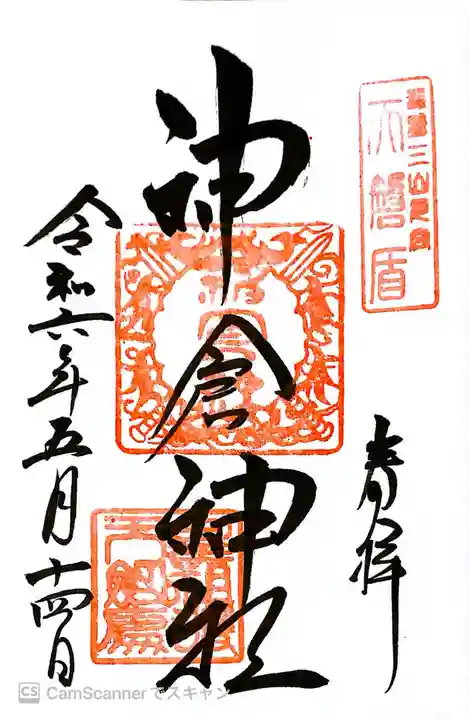 奉拝
熊野三山元宮
天磐盾
神倉神社
令和六年五月十四日
CS CamScannerでスキャン